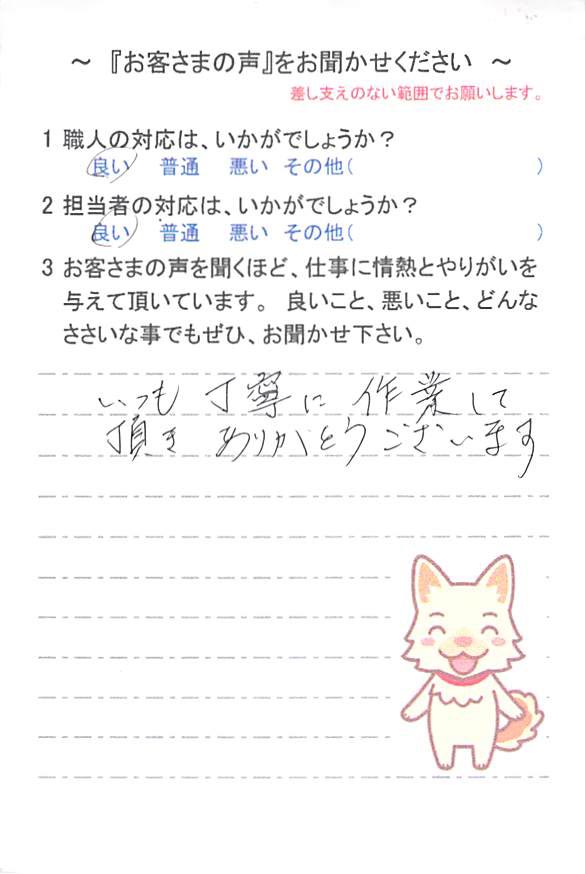 ～ 『お客さまの声』をお聞かせください ～
差し支えのない範囲でお願いします。
1 職人の対応は、いかがでしょうか？
良い 普通 悪い その他( )
2 担当者の対応は、いかがでしょうか？
良い 普通 悪い その他( )
3 お客さまの声を聞くほど、仕事に情熱とやりがいを
与えて頂いています。 良いこと、悪いこと、どんな
ささいな事でもぜひ、お聞かせ下さい。
いつも 丁寧に 作業して
頂き ありがとうございます